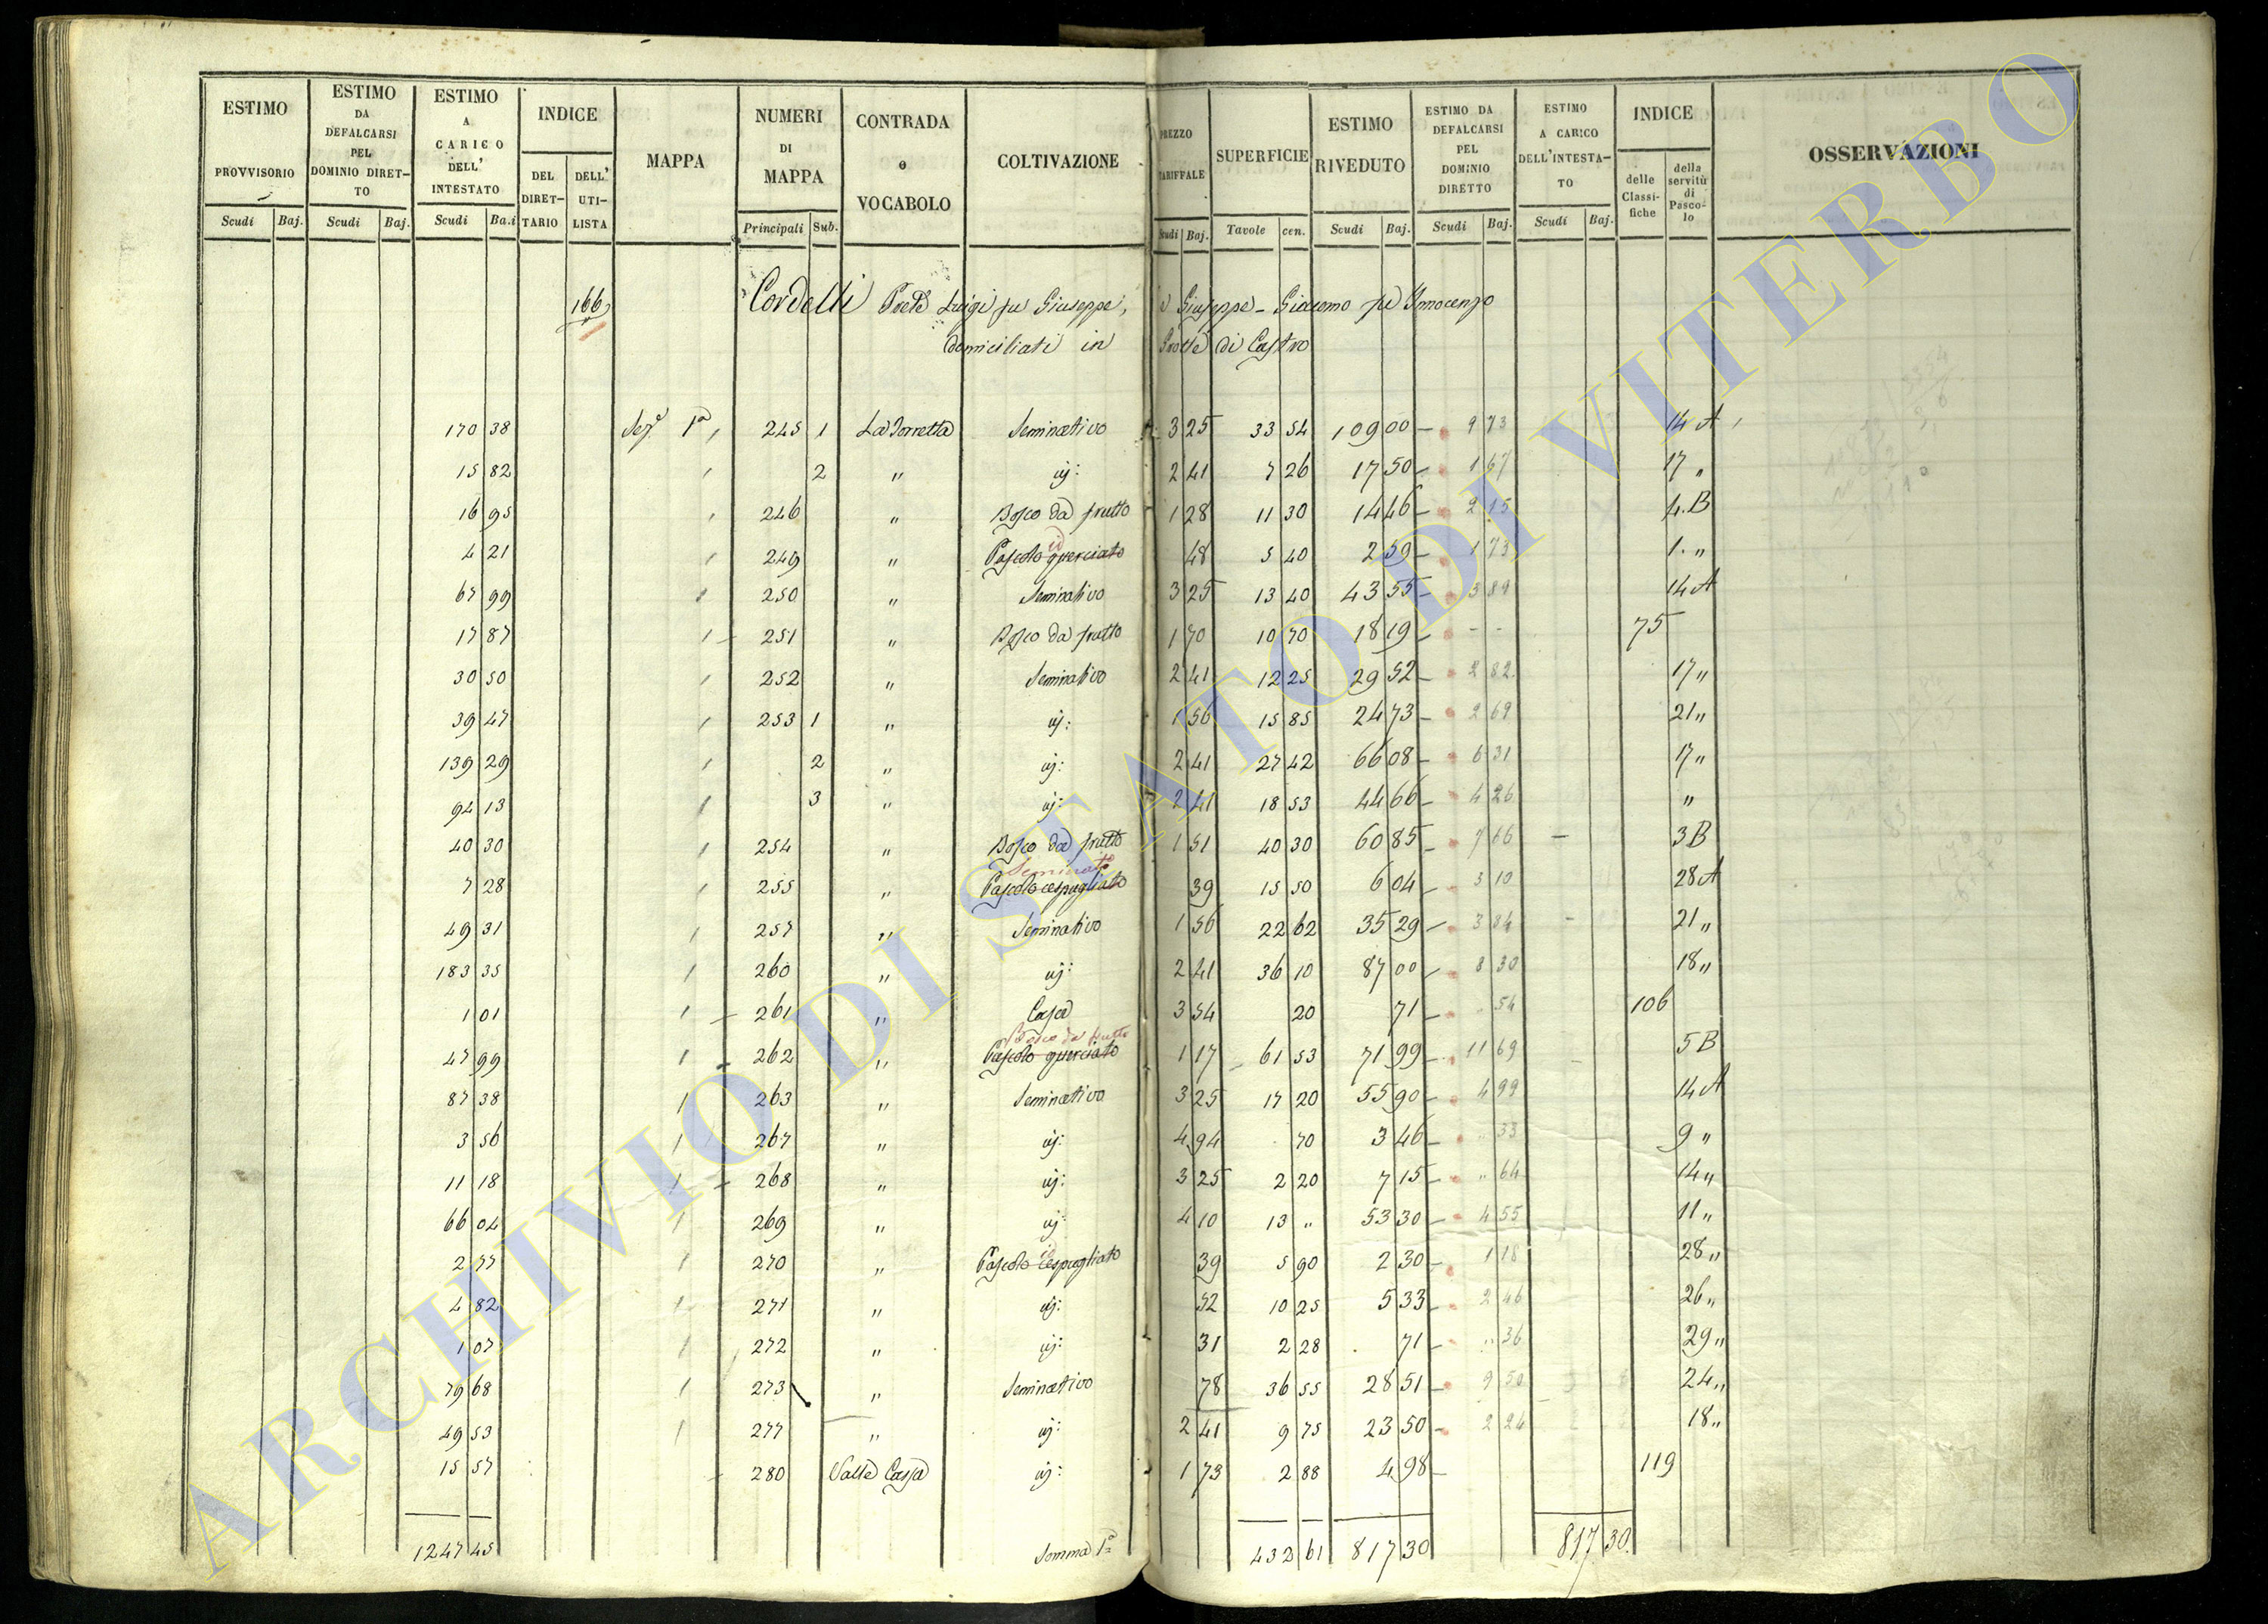 ESTIMO PROVVISORIO Scudi Baj.
ESTIMO DA DEFALCARSI PEL DOMINIO DIRETTO Scudi Baj.
ESTIMO A CARICO DELL' INTESTATO Scudi Ba.i
INDICE DEL DIRETTARIO DELL' UTILISTA
MAPPA
NUMERI DI MAPPA Principali Sub.
CONTRADA o VOCABOLO
COLTIVAZIONE
PREZZO TARIFFALE Scudi Baj.
SUPERFICIE Tavole cen.
ESTIMO RIVEDUTO Scudi Baj.
ESTIMO DA DEFALCARSI PEL DOMINIO DIRETTO Scudi Baj.
ESTIMO A CARICO DELL'INTESTATO Scudi Baj.
INDICE delle Classifiche della servitù di Pascolo
OSSERVAZIONI
166 Cordelli Prete Luigi fu Giuseppe, e Giuseppe - Giacomo fu Innocenzo
domiciliati in Grotte di Castro
170 38 Sez.e 1a 245 1 La Torretta Seminativo 3 25 33 54 109 00 9 73 14 A
15 82 2 " id: 2 41 7 26 17 50 1 67 17 "
16 95 246 " Bosco da frutto 1 28 11 30 14 46 2 15 4. B
4 21 249 " Pascolo querciato 48 5 40 2 59 1 73 1. "
67 99 250 " Seminativo 3 25 13 40 43 55 3 89 14 A
17 87 1 251 " Bosco da frutto 1 70 10 70 18 19 - - 75
30 50 252 " Seminativo 2 41 12 25 29 52 2 82 17 "
39 47 253 1 " id: 1 56 15 85 24 73 2 69 21 "
139 29 2 " id: 2 41 27 42 66 08 6 31 17 "
94 13 3 " id: 2 41 18 53 44 66 4 26 "
40 30 254 " Bosco da frutto 1 51 40 30 60 85 7 66 3 B
Seminato
7 28 255 " Pascolo cespugliato 39 15 50 6 04 3 10 28 A
49 31 257 " Seminativo 1 56 22 62 35 29 3 84 21 "
183 35 1 260 " id: 2 41 36 10 87 00 8 30 18 "
1 01 1 261 " Casa 3 54 20 71 " 54 106
Bosco da frutto
47 99 1 262 " Pascolo querciato 1 17 61 53 71 99 11 69 5 B
87 38 1 263 " Seminativo 3 25 17 20 55 90 4 99 14 A
3 56 1 267 " id: 4 94 70 3 46 " 33 9 "
11 18 1 268 " id: 3 25 2 20 7 15 " 64 14 "
66 04 1 269 " id: 4 10 13 " 53 30 4 55 11 "
2 77 1 270 " Pascolo cespugliato 39 5 90 2 30 1 18 28 "
4 82 1 271 " id: 52 10 25 5 33 2 46 26 "
1 07 1 272 " id: 31 2 28 71 " 36 29 "
79 68 1 273 " Seminativo 78 36 55 28 51 9 50 24 "
49 53 1 277 " id: 2 41 9 75 23 50 2 24 18 "
15 57 280 Valle Cassa id: 1 73 2 88 4 98 119
1247 45 Somma 1a 432 61 817 30 817 30
ARCHIVIO DI STATO DI VITERBO